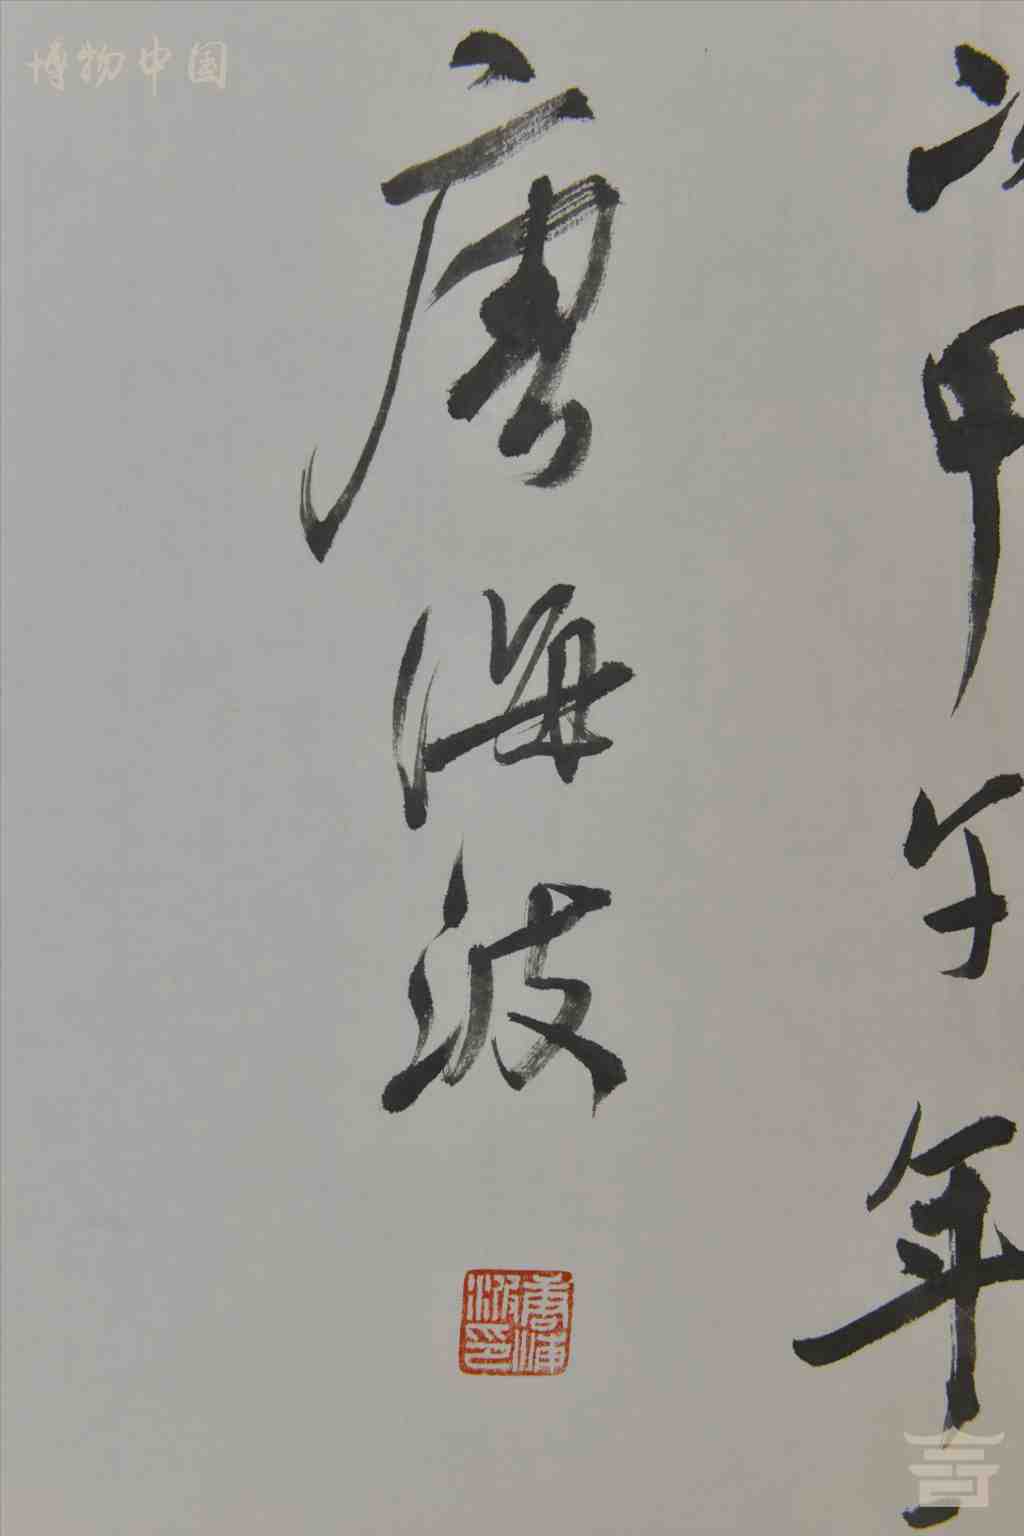 博物中国
次甲午年
唐海波
唐海波印